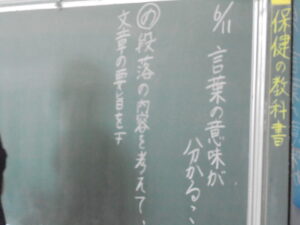 保健の教科書
6/11 言葉の意味が
分かること
の段落の内容を考えて、
文章の要旨を